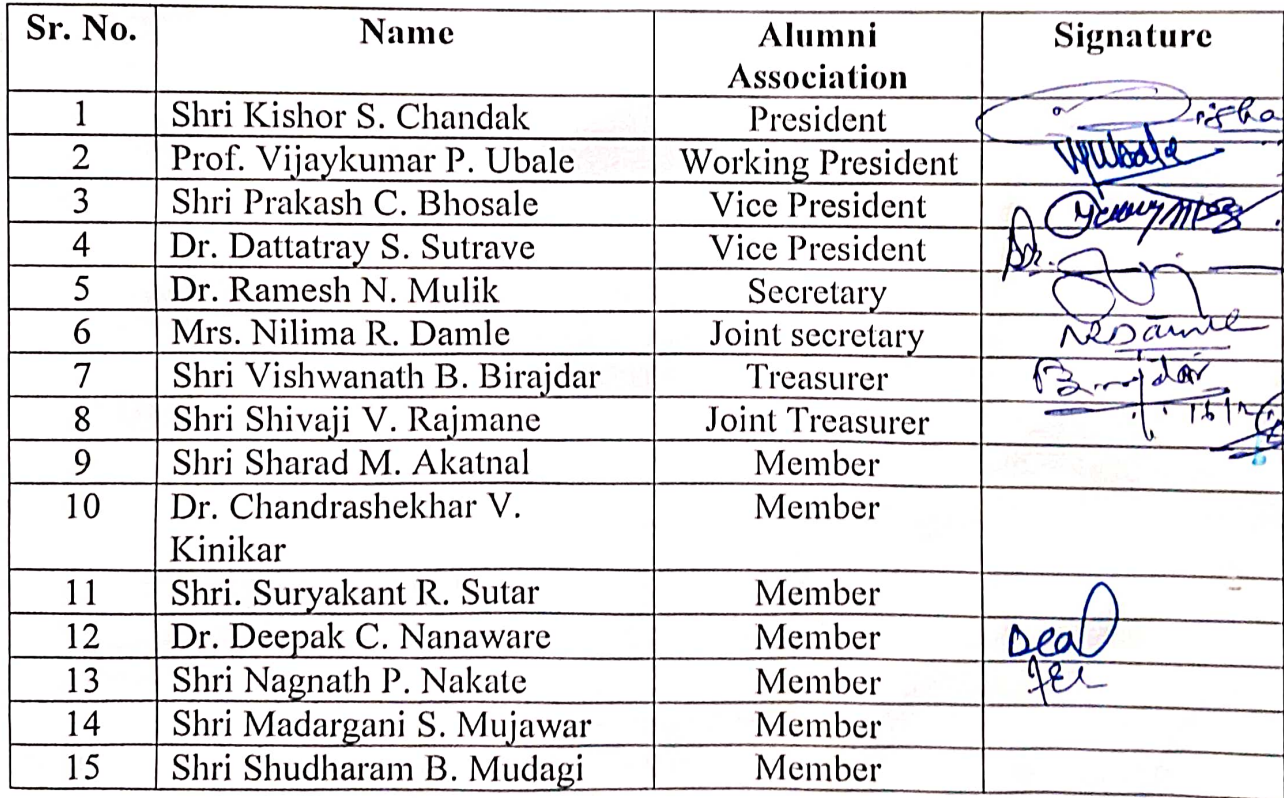 Sr. No. Name Alumni Signature
Association
1 Shri Kishor S. Chandak President
2 Prof. Vijaykumar P. Ubale Working President VPUbale
3 Shri Prakash C. Bhosale Vice President
4 Dr. Dattatray S. Sutrave Vice President Dr.
5 Dr. Ramesh N. Mulik Secretary
6 Mrs. Nilima R. Damle Joint secretary NRDamle
7 Shri Vishwanath B. Birajdar Treasurer Birajdar
8 Shri Shivaji V. Rajmane Joint Treasurer
9 Shri Sharad M. Akatnal Member
10 Dr. Chandrashekhar V. Member
Kinikar
11 Shri. Suryakant R. Sutar Member
12 Dr. Deepak C. Nanaware Member
13 Shri Nagnath P. Nakate Member
14 Shri Madargani S. Mujawar Member
15 Shri Shudharam B. Mudagi Member